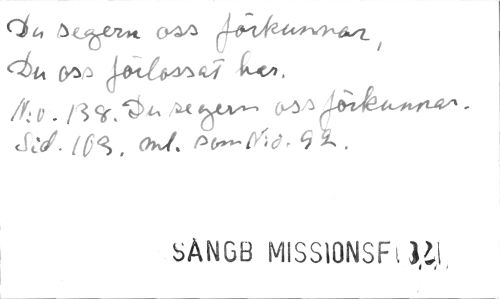 Du segern oss förkunnar,
Du oss förlossat har.
N:o. 138. Du segern oss förkunnar.
Sid. 103. ml. som N:o. 92.
SÅNGB MISSIONSF